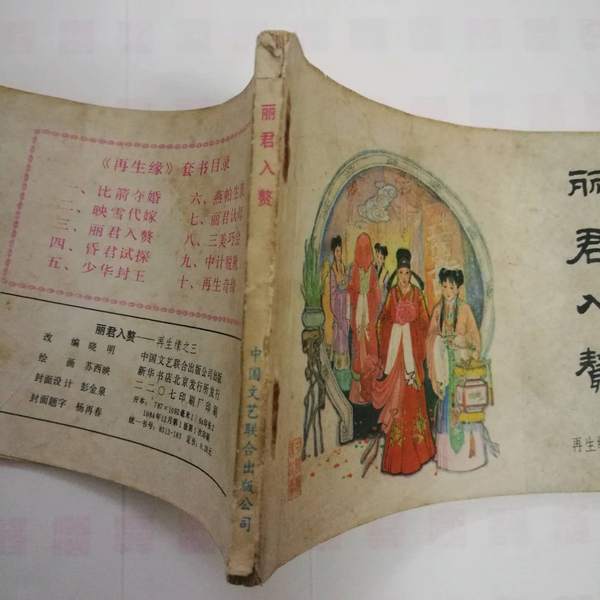 《再生缘》套书目录
一、比箭夺婚
二、映雪代嫁
三、丽君入赘
四、昏君试探
五、少华封王
六、燕帕
七、丽君
八、三美巧会
九、中计脱靴
十、再生奇缘
丽君入赘——再生缘之三
改编 晓明
绘画 苏西映
封面设计 彭金泉
封面题字 杨再春
中国文艺联合出版公司出版
新华书店北京发行所发行
二二〇七印刷厂印刷
开本：787×1092毫米
1984年12月
统一书号：8313·163 定价：0.20元
丽君入赘
中国文艺联合出版公司
丽君入赘
再生缘